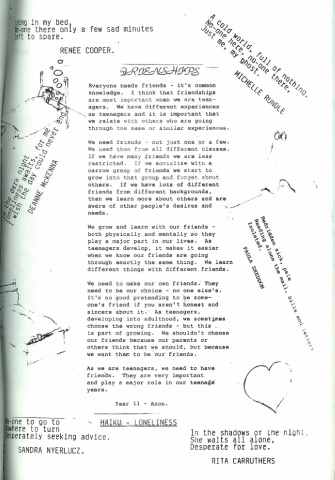 Lying in my bed,
No-one there only a few sad minutes
left to spare.
RENEE COOPER.
A cold world, full of nothing,
No-one here, no-one there,
Just me, my ghost.
MICHELLE
FRIENDSHIPS
Everyone needs friends - it's common
knowledge. I think that friendships
are most important when we are teen-
agers. We have different experiences
as teenagers and it is important that
we relate with others who are going
through the same or similar experiences.
We need friends - not just one or a few.
We need them from all different classes.
If we have many friends we are less
restricted. If we socialize with a
narrow group of friends we start to
grow into that group and forget about
others. If we have lots of different
friends from different backgrounds,
then we learn more about others and are
aware of other people's desires and
needs.
We grow and learn with our friends -
both physically and mentally so they
play a major part in our lives. As
teenagers develop, it makes it easier
when we know our friends are going
through exactly the same thing. We learn
different things with different friends.
We need to make our own friends. They
need to be our choice - no one else's.
It's no good pretending to be some-
one's friend if you aren't honest and
sincere about it. As teenagers,
developing into adulthood, we sometimes
choose the wrong friends - but this
is part of growing. We shouldn't choose
our friends because our parents or
others think that we should, but because
we want them to be our friends.
As we are teenagers, we need to have
friends. They are very important
and play a major role in our teenage
years.
Year 11 - Anon.
DEANNE MCKENNA
Isolated.
PAULA
HAIKU - LONELINESS
No-one to go to
Nowhere to turn
Desperately seeking advice.
SANDRA NYERLUCZ.
In the shadows of the night,
She waits all alone,
Desperate for love.
RITA CARRUTHERS